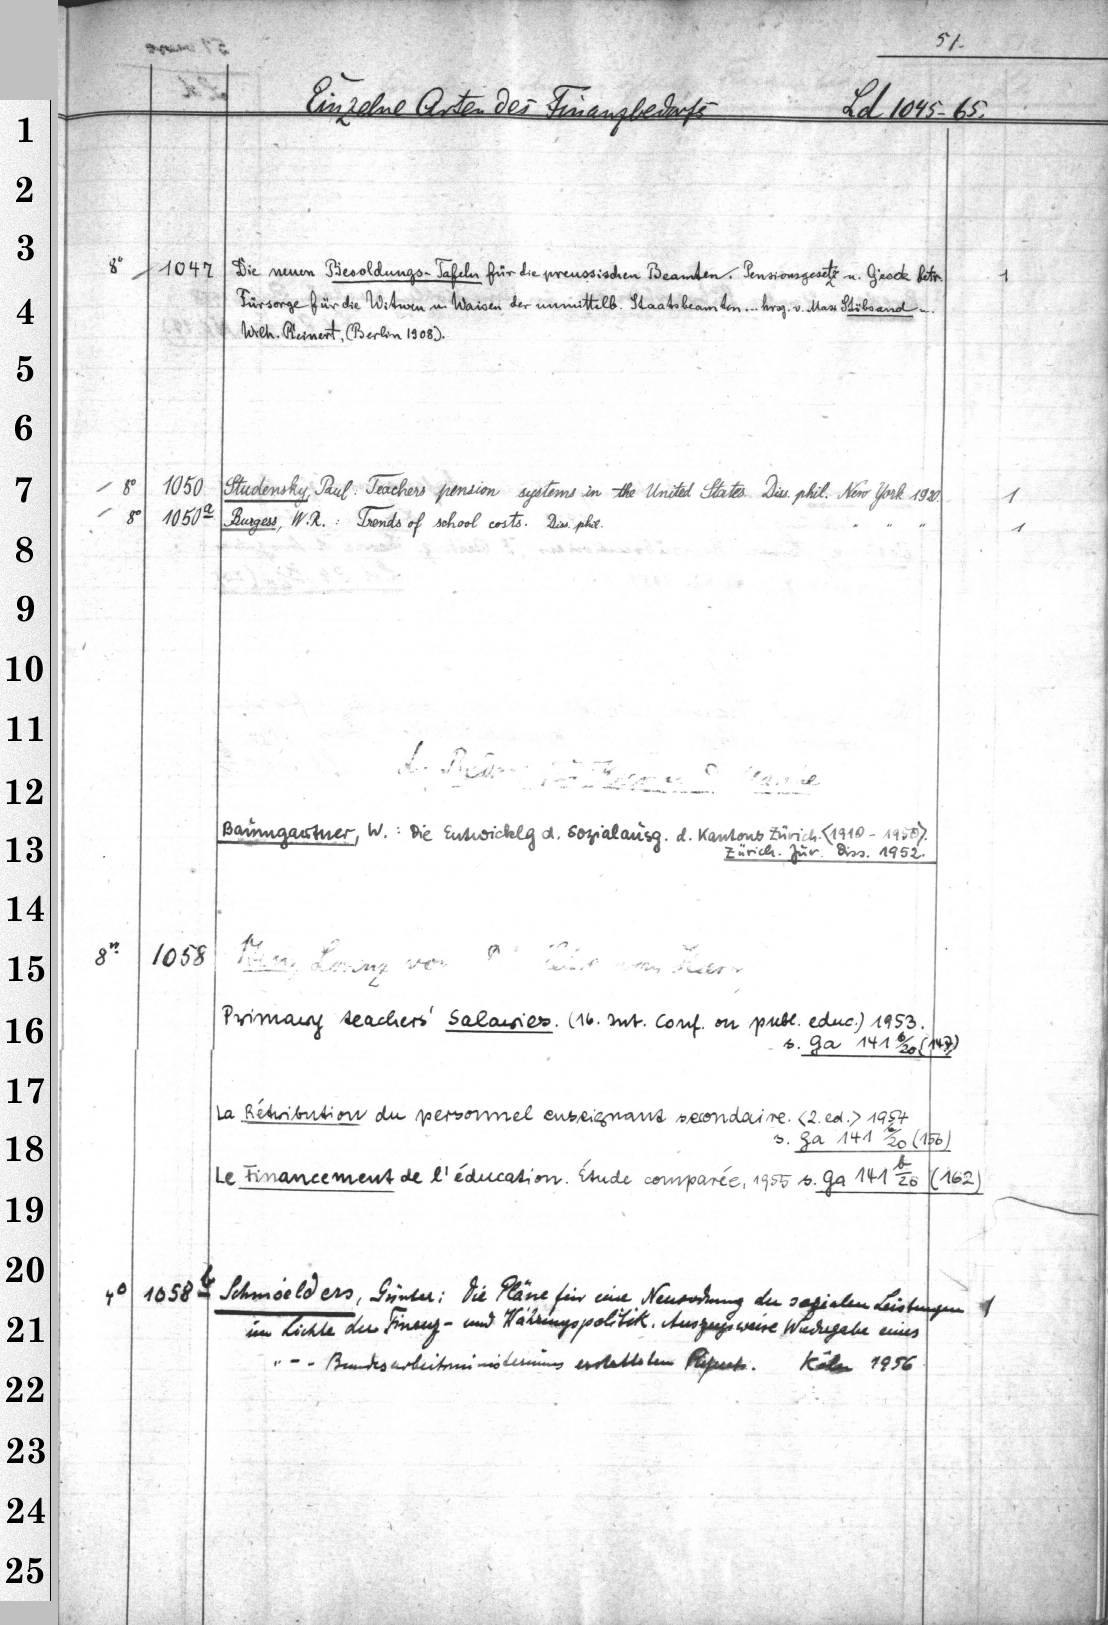 51.
Einzelne Arten des Finanzbedarfs Ld 1045-65.
1
2
3
8° 1047 Die neuen Besoldungs-Tafeln für die preussischen Beamten. Pensionsgesetz u. Gesetz betr. 1
4
Fürsorge für die Witwen u Waisen der unmittelb. Staatsbeamten... hrsg. v. Max Stübsand u.
Wilh. Reinert, (Berlin 1908).
5
6
7
8° 1050 Studensky, Paul: Teachers pension systems in the United States. Diss. phil. New York 1920. 1
8° 1050a Burgess, W.R.: Trends of school costs. Diss. phil. " " " 1
8
9
10
11
12
Baumgartner, W.: Die Entwicklg d. Sozialausg. d. Kantons Zürich. <1910-1950>.
13
Zürich. Jur. Diss. 1952.
14
8° 1058
15
Primary teachers' Salaries. (16. Int. Conf. on publ. educ.) 1953.
16
s. Ga 141 b/20 (147)
17
La Rétribution du personnel enseignant secondaire. <2. ed.> 1954
s. Ga 141 b/20 (150)
18
Le Financement de l'éducation. Étude comparée, 1955 s. Ga 141 b/20 (162)
19
20
4° 1058b Schmoelders, Günter: Die Pläne für eine Neuordnung der sozialen Leistungen 1
21
im Lichte der Finanz- und Währungspolitik. Auszugsweise Wiedergabe eines
" - - Bundesarbeitsministeriums erstatteten Köln 1956
22
23
24
25